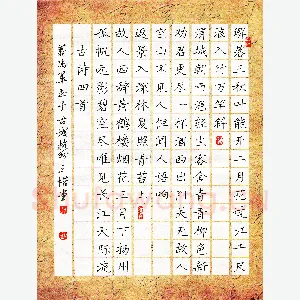 解落三秋叶能开二月花过江千尺
浪入竹万竿斜
渭城朝雨浥轻尘客舍青青柳色新
劝君更尽一杯酒西出阳关无故人
空山不见人但闻人语响
返景入深林复照青苔上
故人西辞黄鹤楼烟花三月下扬州
孤帆远影碧空尽唯见长江天际流
古诗四首